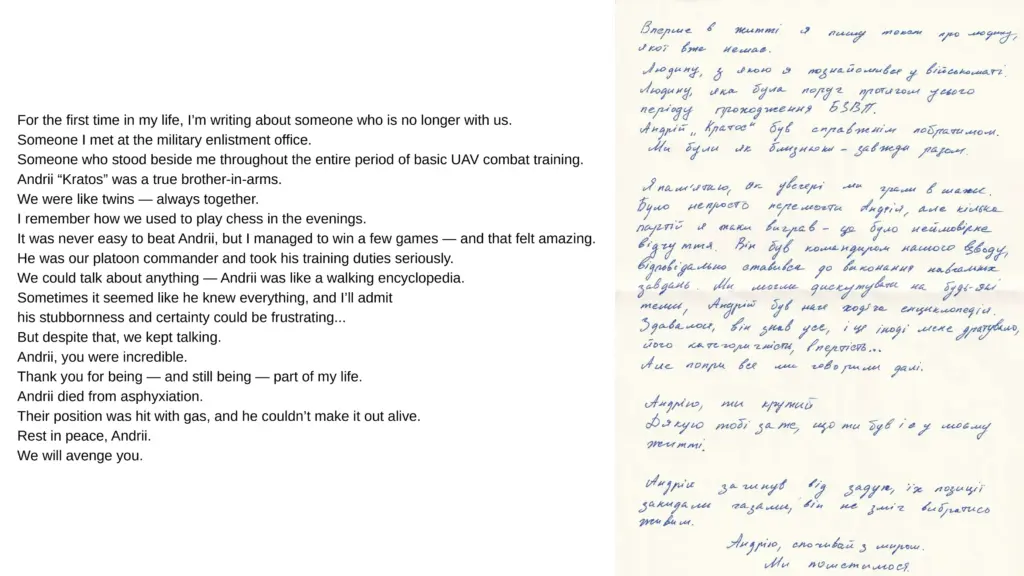 For the first time in my life, I’m writing about someone who is no longer with us.
Someone I met at the military enlistment office.
Someone who stood beside me throughout the entire period of basic UAV combat training.
Andrii “Kratos” was a true brother-in-arms.
We were like twins — always together.
I remember how we used to play chess in the evenings.
It was never easy to beat Andrii, but I managed to win a few games — and that felt amazing.
He was our platoon commander and took his training duties seriously.
We could talk about anything — Andrii was like a walking encyclopedia.
Sometimes it seemed like he knew everything, and I’ll admit
his stubbornness and certainty could be frustrating...
But despite that, we kept talking.
Andrii, you were incredible.
Thank you for being — and still being — part of my life.
Andrii died from asphyxiation.
Their position was hit with gas, and he couldn’t make it out alive.
Rest in peace, Andrii.
We will avenge you.
Вперше в житті я пишу текст про людину,
якої вже немає.
Людину, з якою я познайомився у військоматі.
Людину, яка була поруч протягом усього
періоду проходження БЗВП.
Андрій „Кратос“ був справжнім побратимом.
Ми були як близнюки – завжди разом.
Я пам'ятаю, як увечері ми грали в шахи.
Було непросто перемогти Андрія, але кілька
партій я таки виграв – це було неймовірне
відчуття. Він був командиром нашого взводу,
відповідально ставився до виконання навчальних
завдань. Ми могли дискутувати на будь-які
теми, Андрій був наче ходяча енциклопедія.
Здавалося, він знав усе, і це іноді мене дратувало,
його категоричність, впертість...
Але попри все ми говорили далі.
Андрію, ти крутий
Дякую тобі за те, що ти був і є у моєму
житті.
Андрій загинув від задухи, їх позиції
закидали газами, він не зміг вибратись
живим.
Андрію, спочивай з миром.
Ми помстимося.